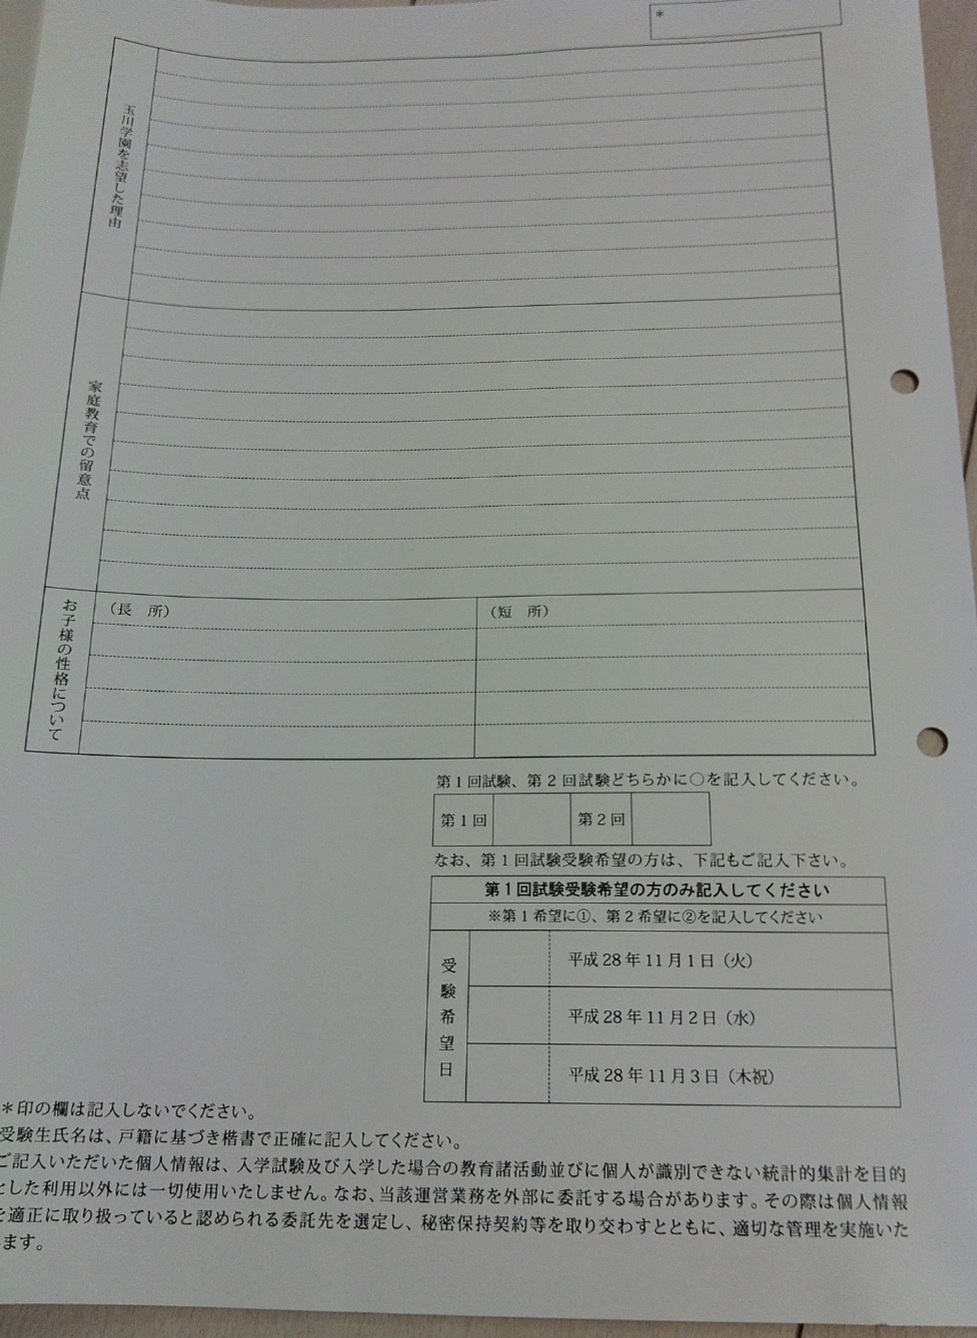 *
玉川学園を志望した理由
家庭教育での留意点
お子様の性格について
（長　所）
（短　所）
第１回試験、第２回試験どちらかに○を記入してください。
第１回
第２回
なお、第１回試験受験希望の方は、下記もご記入下さい。
第１回試験受験希望の方のみ記入してください
※第１希望に①、第２希望に②を記入してください
受験希望日
平成 28 年 11 月 1 日（火）
平成 28 年 11 月 2 日（水）
平成 28 年 11 月 3 日（木祝）
＊印の欄は記入しないでください。
受験生氏名は、戸籍に基づき楷書で正確に記入してください。
ご記入いただいた個人情報は、入学試験及び入学した場合の教育諸活動並びに個人が識別できない統計的集計を目的
とした利用以外には一切使用いたしません。なお、当該運営業務を外部に委託する場合があります。その際は個人情報
を適正に取り扱っていると認められる委託先を選定し、秘密保持契約等を取り交わすとともに、適切な管理を実施いた
します。